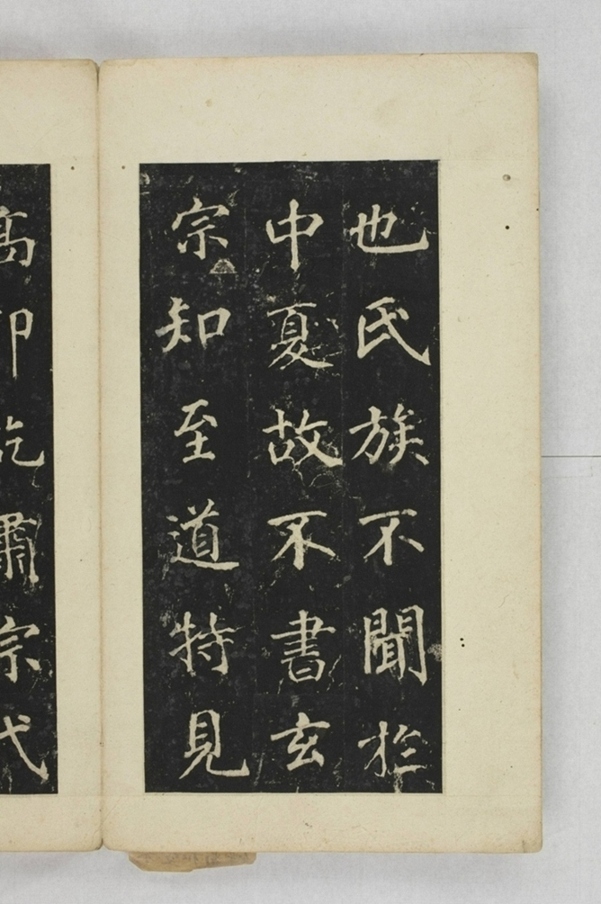 也氏族不聞扵
中夏故不書玄
宗知至道特見
髙仰訖肅宗代